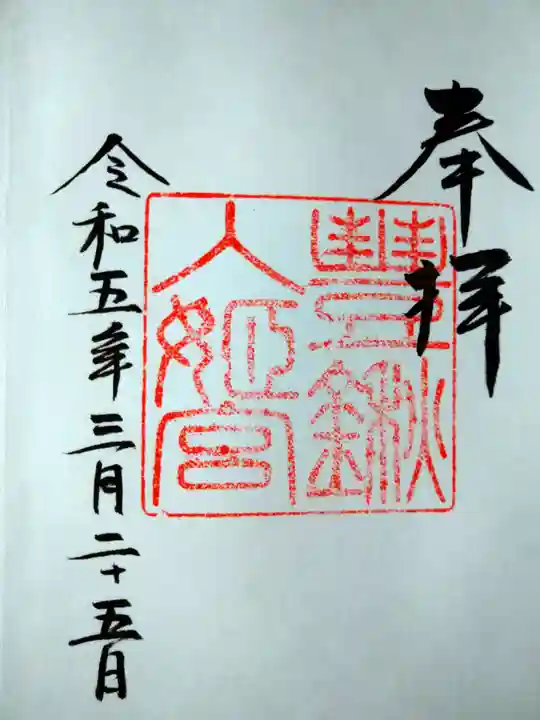 奉拝
豊鍬
入姫宮
令和五年三月二十五日